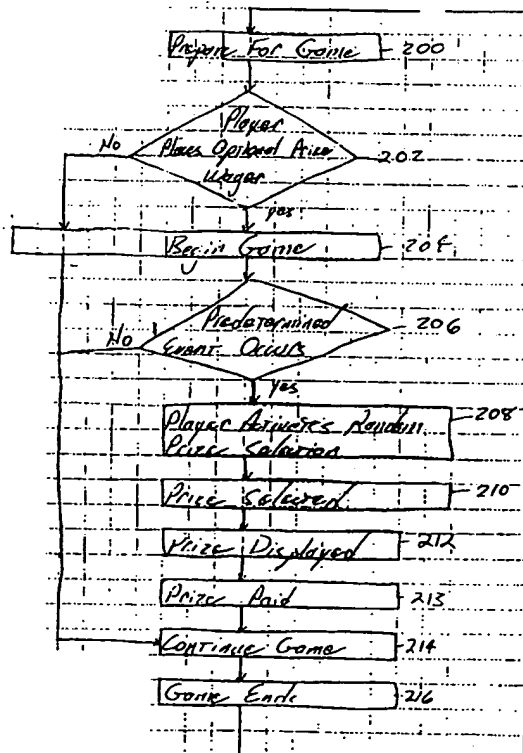 Prepare For Game 200
Player
Places Optional Prize
Wager
202
No
yes
Begin Game 204
Predetermined
Event Occurs
206
No
yes
Player Activates Random
Prize Selection
208
Prize Selected 210
Prize Displayed 212
Prize Paid 213
Continue Game 214
Game Ends 216